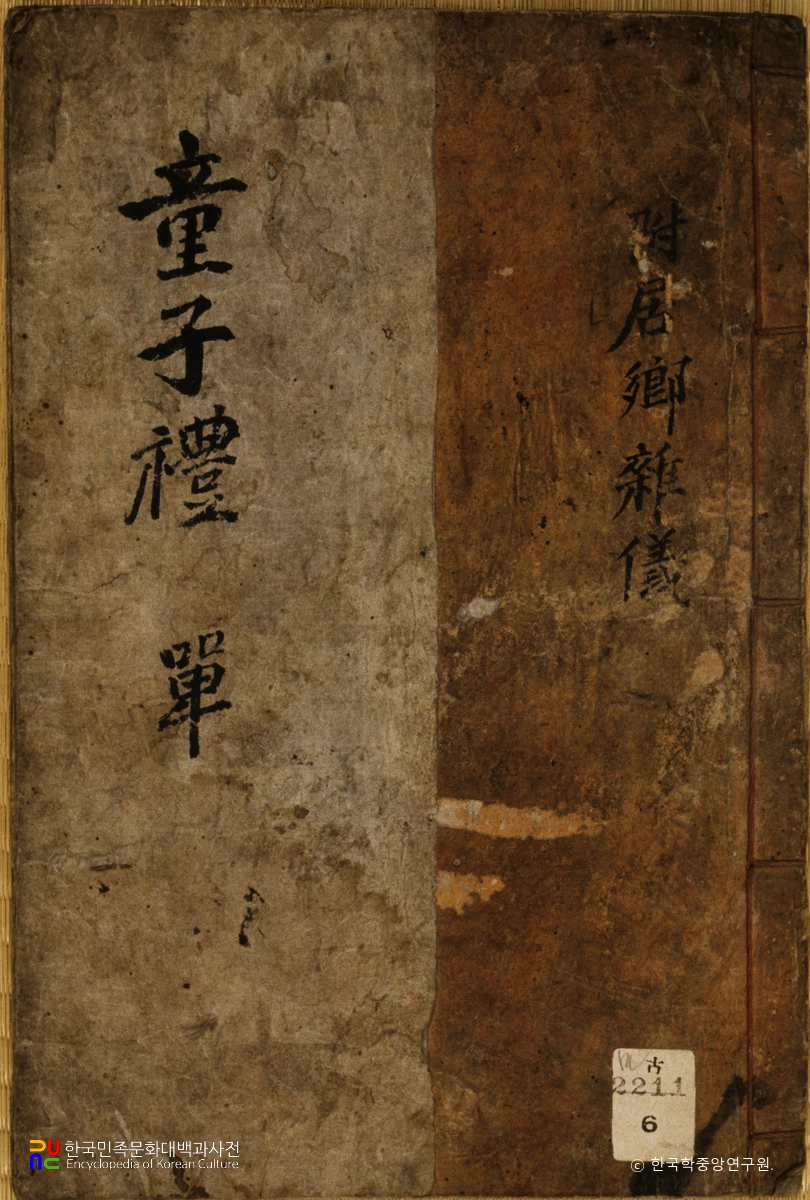 附居鄉雜儀
童子禮 單
古
2211
6
한국민족문화대백과사전
Encyclopedia of Korean Culture
© 한국학중앙연구원.